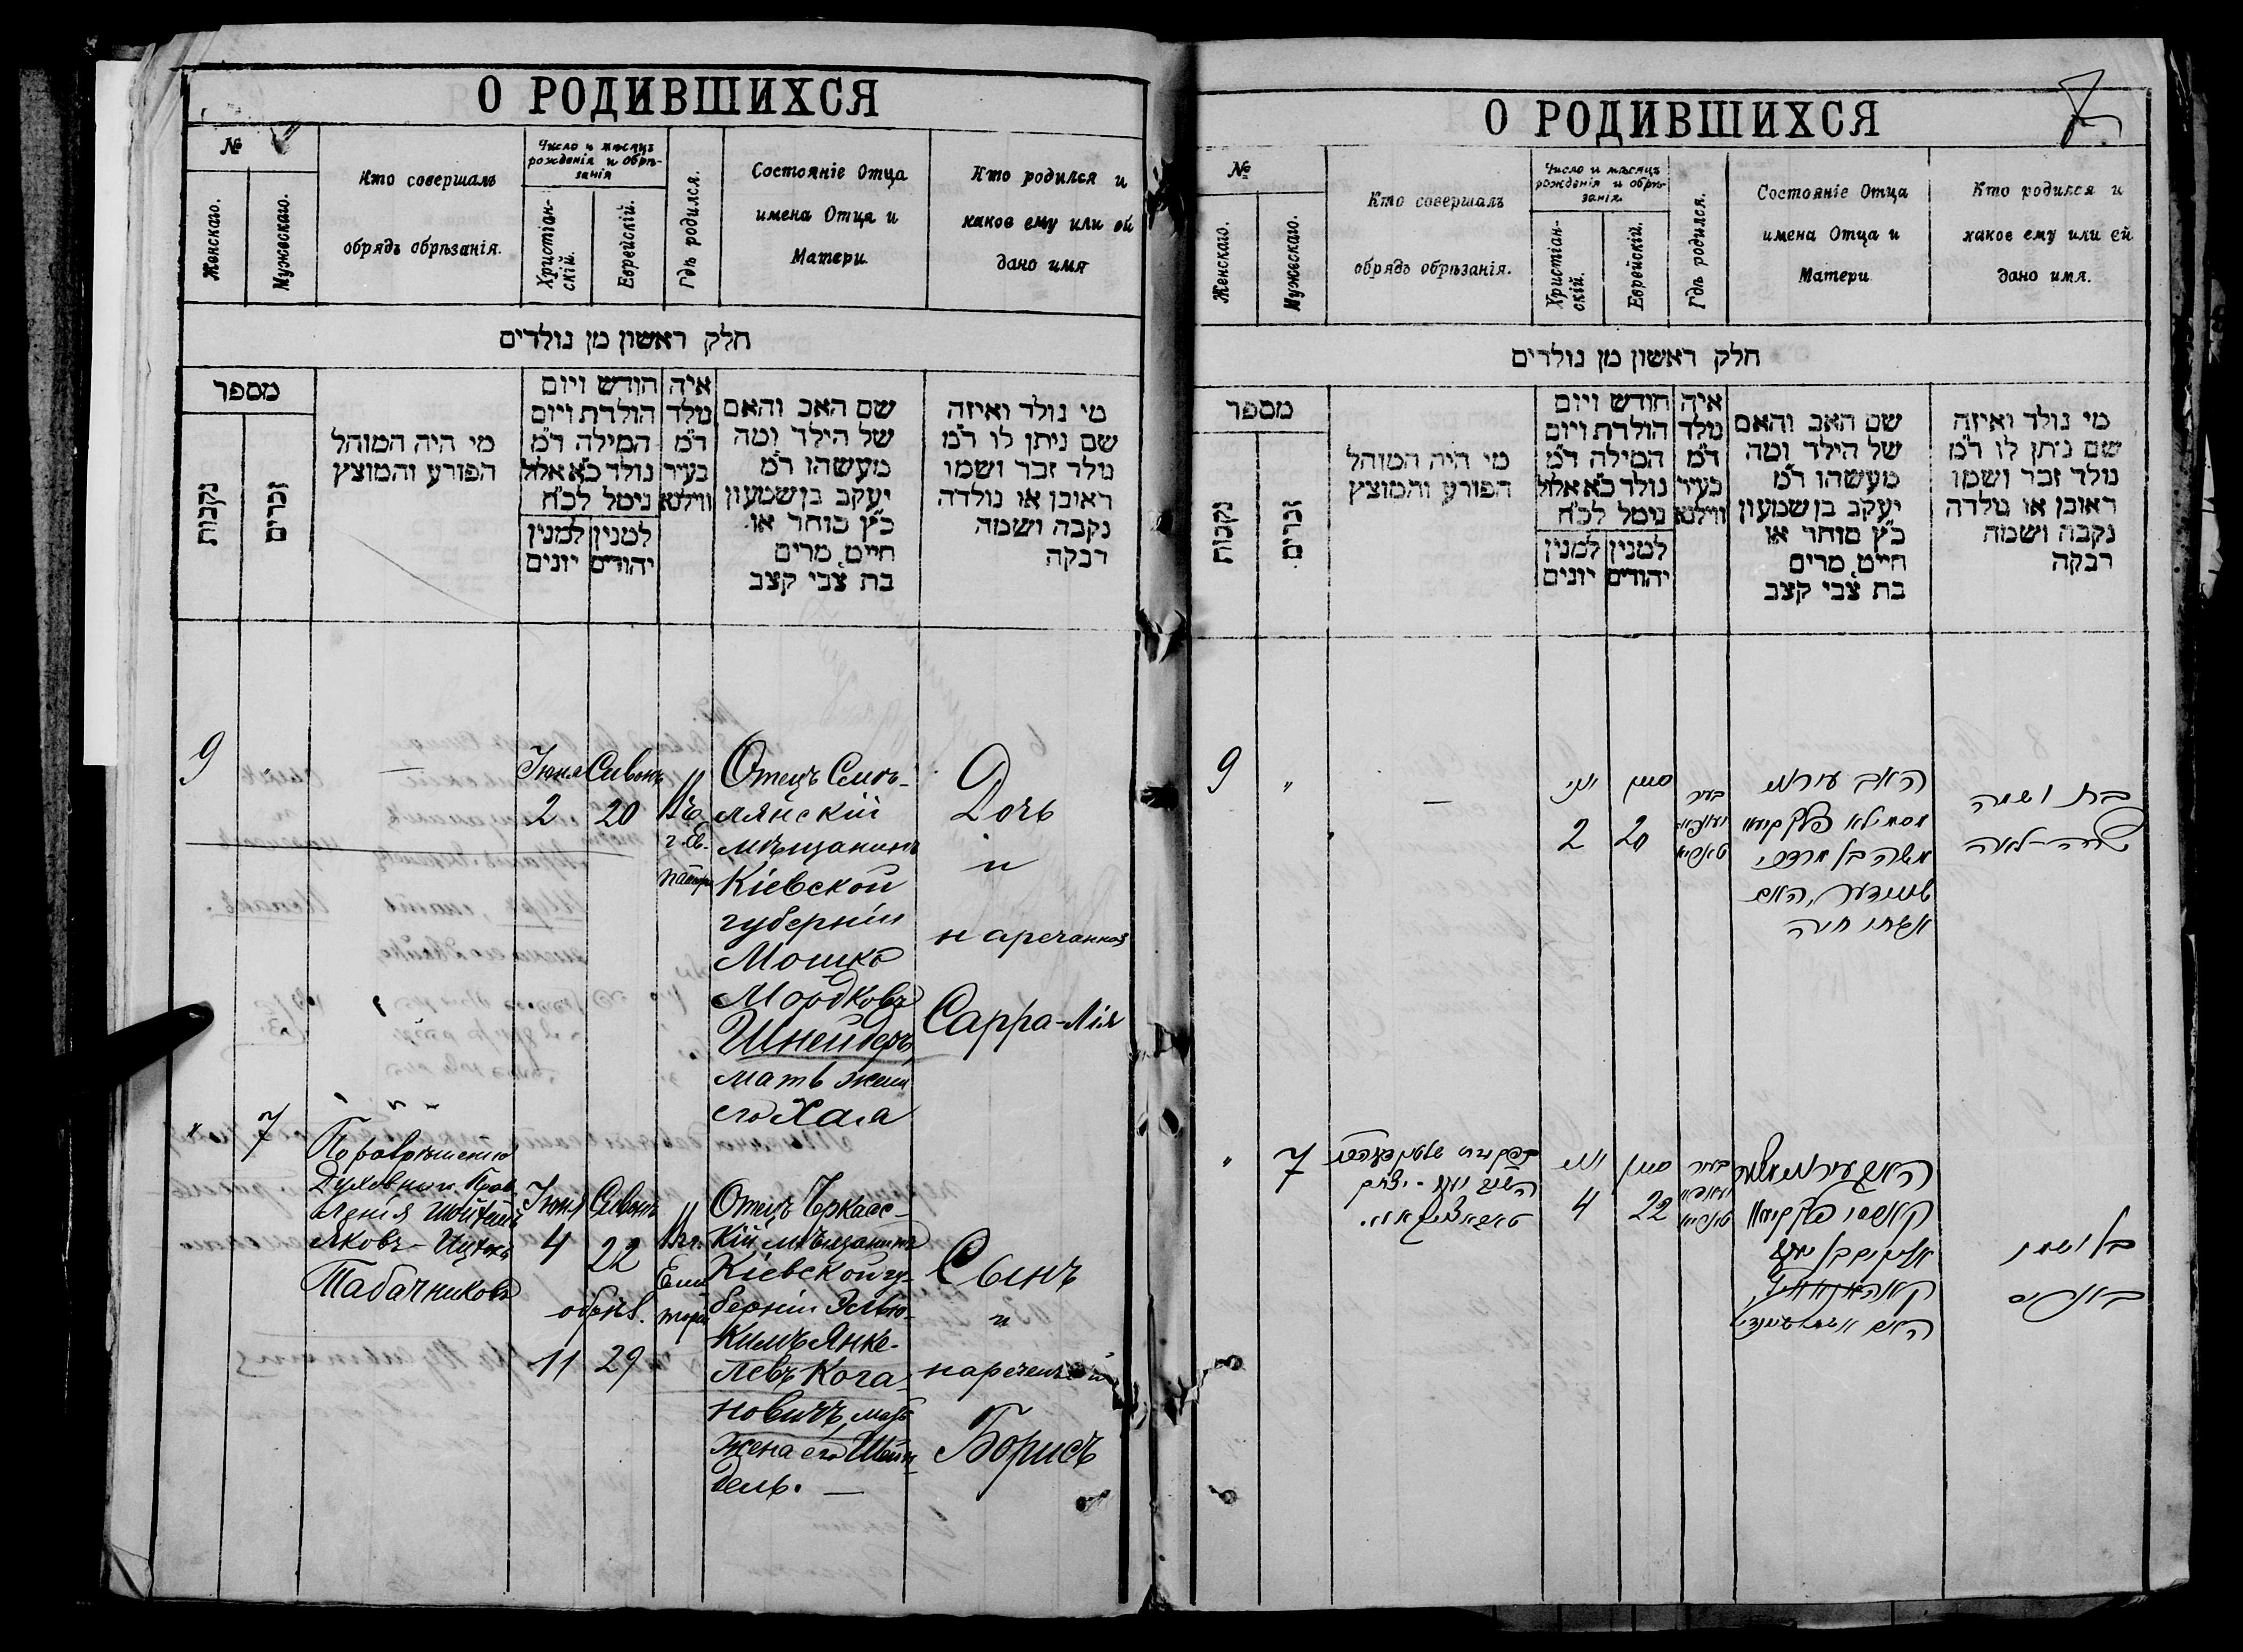 О РОДИВШИХСЯ
№
Женскаго.
Мужескаго.
Кто совершалъ
обрядъ обрѣзанія.
Число и мѣсяцъ
рожденія и обрѣ-
занія
Христіан-
скій.
Еврейскій.
Гдѣ родился.
Состояніе Отца
имена Отца и
Матери.
Кто родился и
какое ему или ей
дано имя
חלק ראשון מן נולדים
מספר
נקבות
זכרים
מי היה המוהל
הפורע והמוצץ
חודש ויום
הולדת ויום
המילה ד״מ
נולד כ״א אלול
נימל לכ״ח
למנין
יהודים
למנין
יונים
איה
נולד
ד״מ
בעיר
ווילנא
שם האב והאם
של הילד ומה
מעשהו ד״מ
יעקב בן שמעון
כ״ץ סוחר או
חייט, מרים
בת צבי קצב
מי נולד ואיזה
שם ניתן לו ד״מ
נולד זכר ושמו
ראובן או נולדה
נקבה ושמה
רבקה
9
—
Іюня
2
Сивонъ
20
Въ
г. Ев-
патор
Отецъ Смѣ-
лянскій
мѣщанинъ
Кіевской
губерніи
Мошко
Мордковъ
Шнейдеръ,
мать жена
его Хая
Дочь
и
наречанноя
Сарра-Лія
"
7
По разрѣшенію
Духовнаго Прав
ленія
Яковъ-Ицекъ
Табачниковъ
Іюня
4
Сивонъ
22
обрѣз.
11 29
Въ г.
Евпа
торіи
Отецъ Черкас-
кій мѣщанинъ
Кіевской гу-
берніи Элью-
кимъ Янке-
левъ Кога-
новичъ, мать
жена его Шейн-
дель. —
Сынъ
и
нареченный
Борисъ
О РОДИВШИХСЯ
№
Женскаго.
Мужескаго.
Кто совершалъ
обрядъ обрѣзанія.
Число и мѣсяцъ
рожденія и обрѣ-
занія.
Христіан-
скій.
Еврейскій.
Гдѣ родился.
Состояніе Отца
имена Отца и
Матери
Кто родился и
какое ему или ей
дано имя.
חלק ראשון מן נולדים
מספר
נקבות
זכרים
מי היה המוהל
הפורע והמוצץ
חודש ויום
הולדת ויום
המילה ד״מ
נולד כ״א אלול
נימל לכ״ח
למנין
יהודים
למנין
יונים
איה
נולד
ד״מ
בעיר
ווילנא
שם האב והאם
של הילד ומה
מעשהו ד״מ
יעקב בן שמעון
כ״ץ סוחר או
חייט, מרים
בת צבי קצב
מי נולד ואיזה
שם ניתן לו ד״מ
נולד זכר ושמו
ראובן או נולדה
נקבה ושמה
רבקה
9
"
—
יוני
2
סיון
20
בעיר
האב עירוני
משה בן מרדכי
שניידער, האם
אשתו חיה
בת ושמה
שרה-לאה
"
7
יוני
4
סיון
22
בעיר
אליקים בן יעקב
בן ושמו